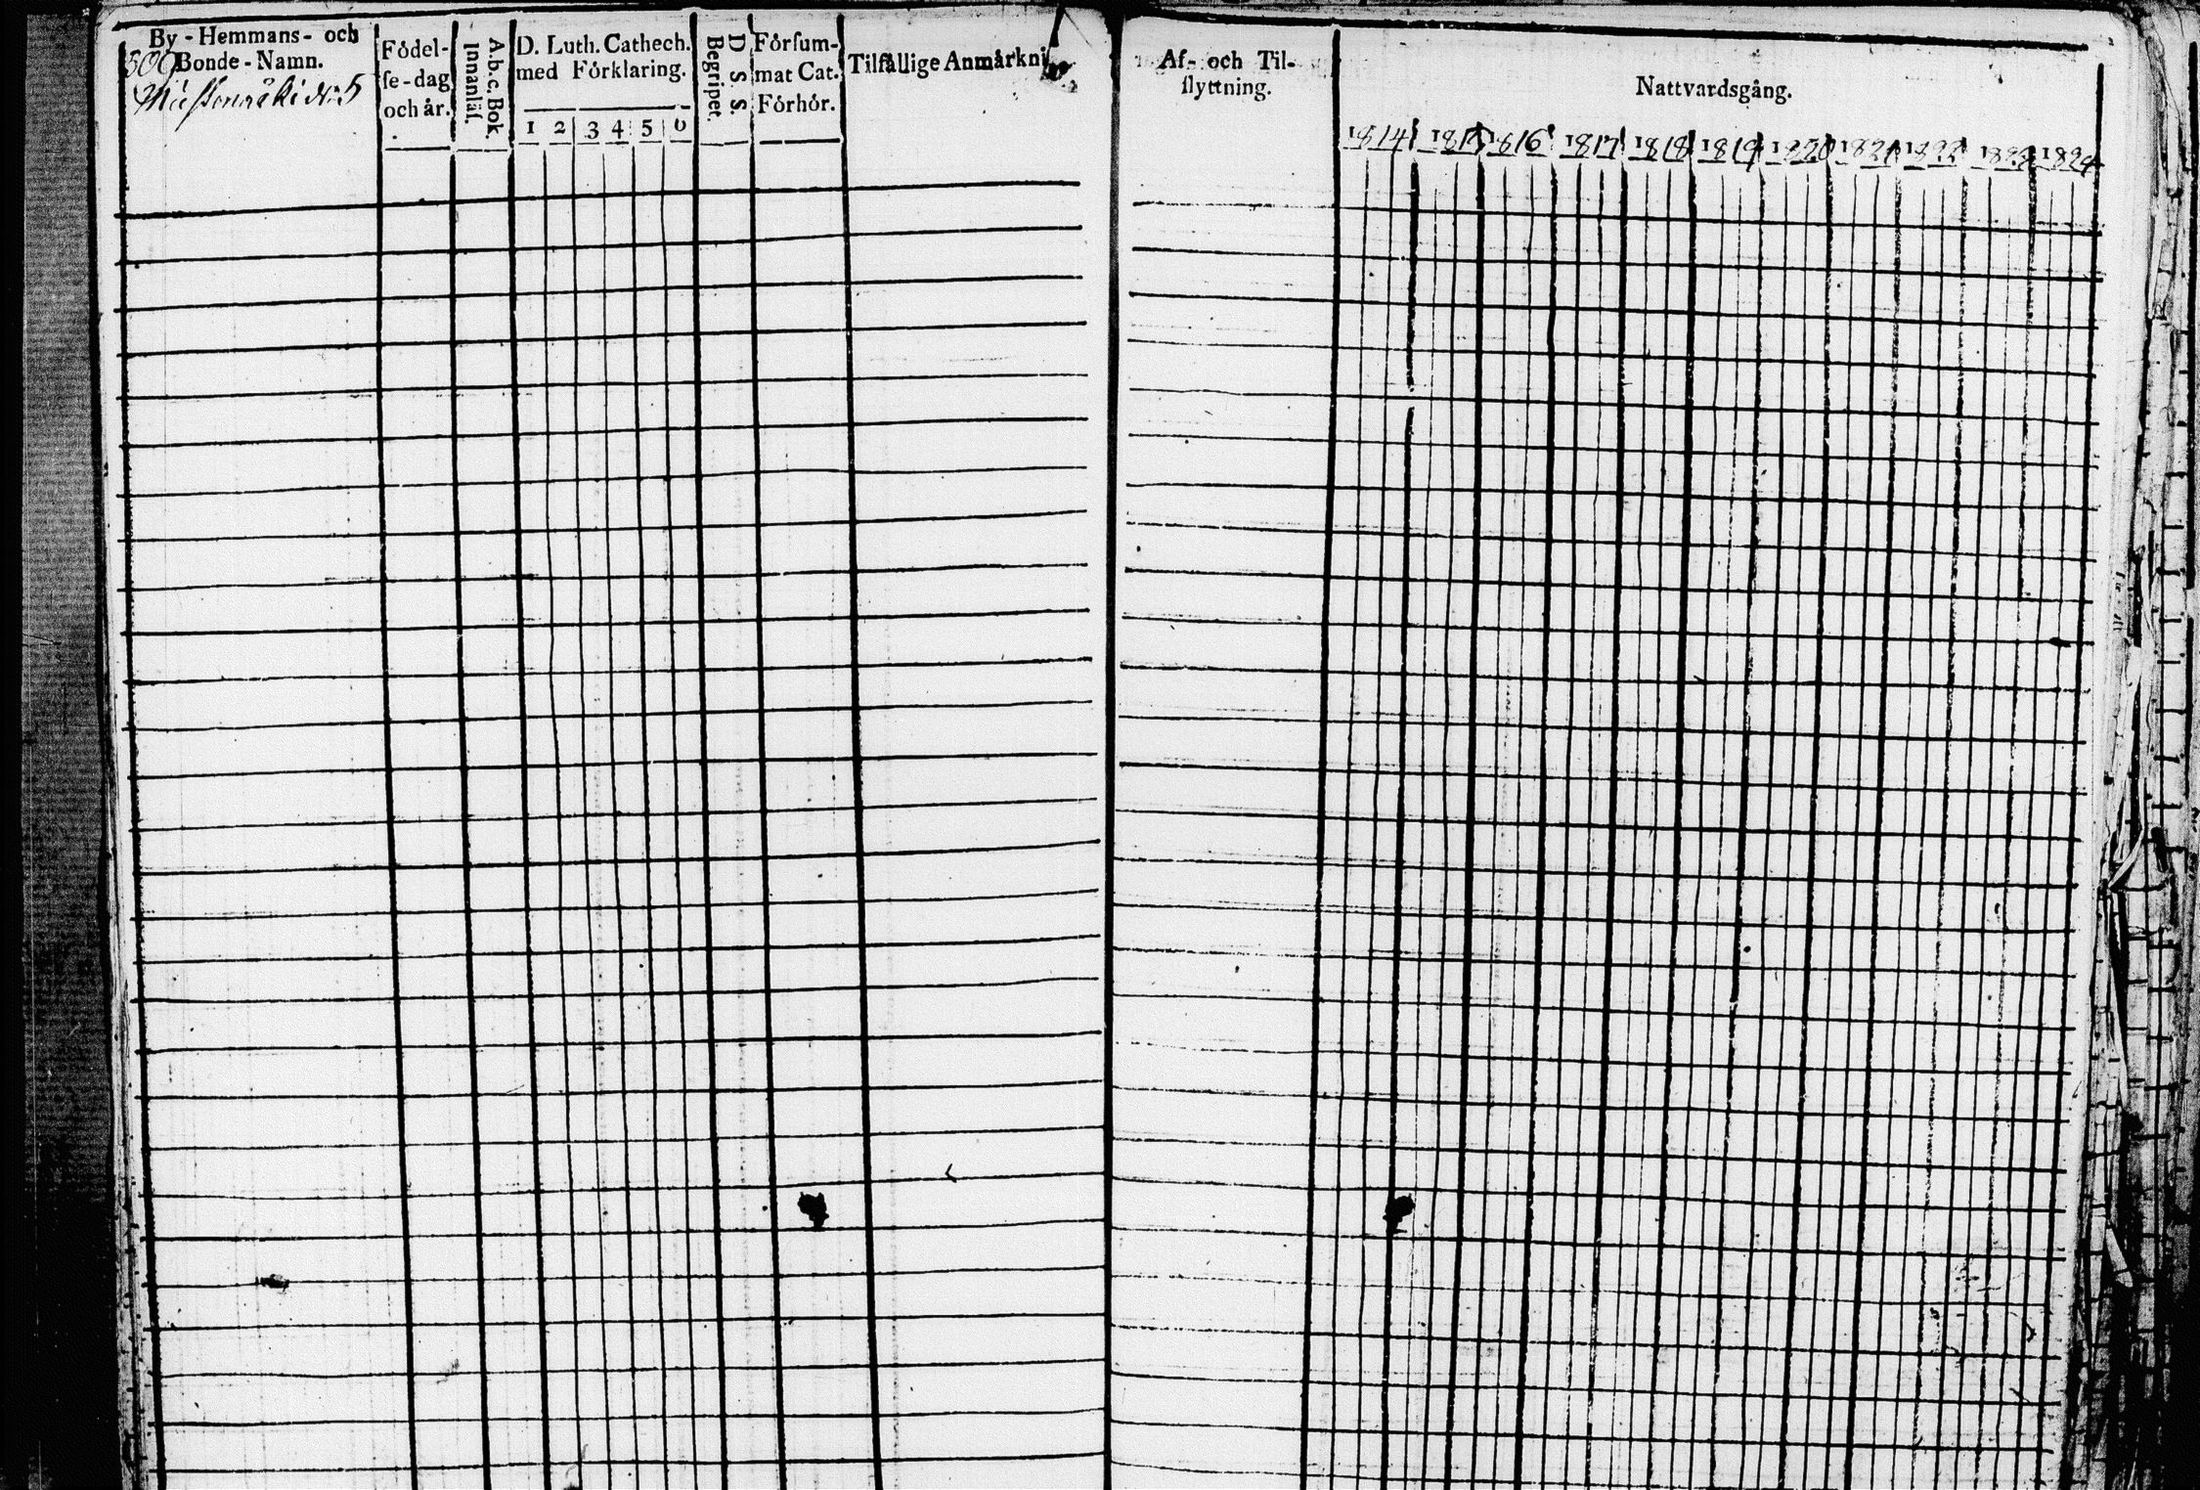 By - Hemmans - och
Bonde - Namn.
N:o 5
Födel-
se - dag
och år.
A.b.c. Bok.
Innanläs.
D. Luth. Cathech.
med Förklaring.
1 2 3 4 5 6
D. S. S.
Begripet.
Försum-
mat Cat.
Förhör.
Tilfällige Anmärkni
Af- och Til-
flyttning.
Nattvardsgång.
1814 1815 1816 1817 1818 1819 1820 1821 1822 1823 1824